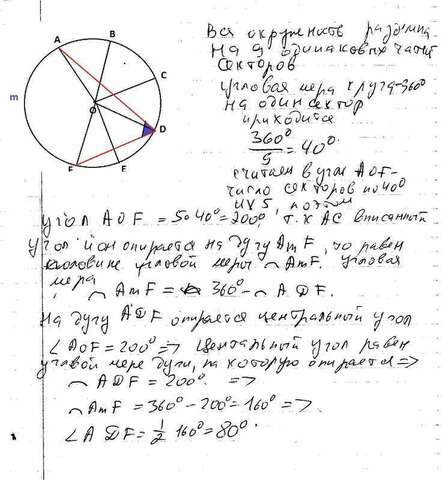 A
B
C
O
D
m
F
E
Вся окружность разбита
на 9 одинаковых частей
секторов
угловая мера круга-360°
на один сектор
приходится
360°/9 = 40°.
считаем в угле AOF-
число секторов по 40°
их 5, поэтому
угол AOF = 5·40° = 200°, т.к вписанный
угол и он опирается на дугу AmF, то равен
половине угловой меры ⌒AmF. угловая
мера
⌒AmF = 360° - ⌒ADF.
На дугу ADF опирается центральный угол
∠AOF = 200° => центальный угол равен
угловой мере дуги, на которую опирается =>
⌒ADF = 200° =>
⌒AmF = 360° - 200° = 160° =>
∠ADF = 1/2 160° = 80°.